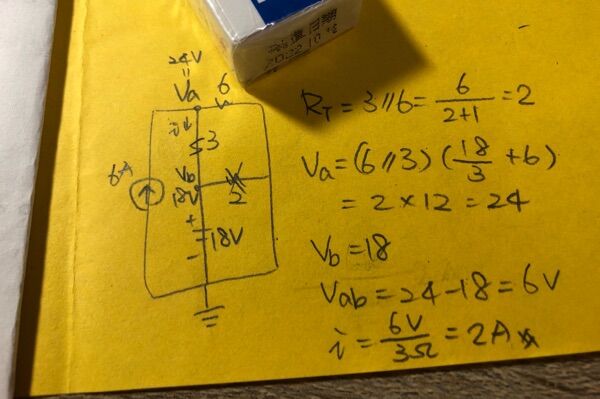 24V
=
Va
6
i↓
3
6A
Vb
18V
2
+
18V
-
R_T = 3//6 = 6/(2+1) = 2
Va = (6//3)(18/3 + 6)
= 2 × 12 = 24
Vb = 18
Vab = 24 - 18 = 6V
i = 6V/3Ω = 2A